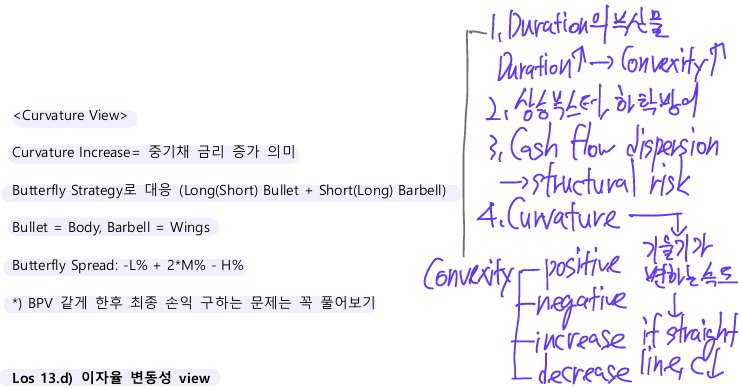 <Curvature View>
Curvature Increase= 중기채 금리 증가 의미
Butterfly Strategy로 대응 (Long(Short) Bullet + Short(Long) Barbell)
Bullet = Body, Barbell = Wings
Butterfly Spread: -L% + 2*M% - H%
*) BPV 같게 한후 최종 손익 구하는 문제는 꼭 풀어보기
Los 13.d) 이자율 변동성 view
1. Duration의 부산물
Duration↑ → Convexity↑
2. 상승부스터, 하락방어
3. Cash flow dispersion
→ structural risk
4. Curvature →
기울기가
변하는 속도
↓
if straight
line, C↓
Convexity
positive
negative
increase
decrease